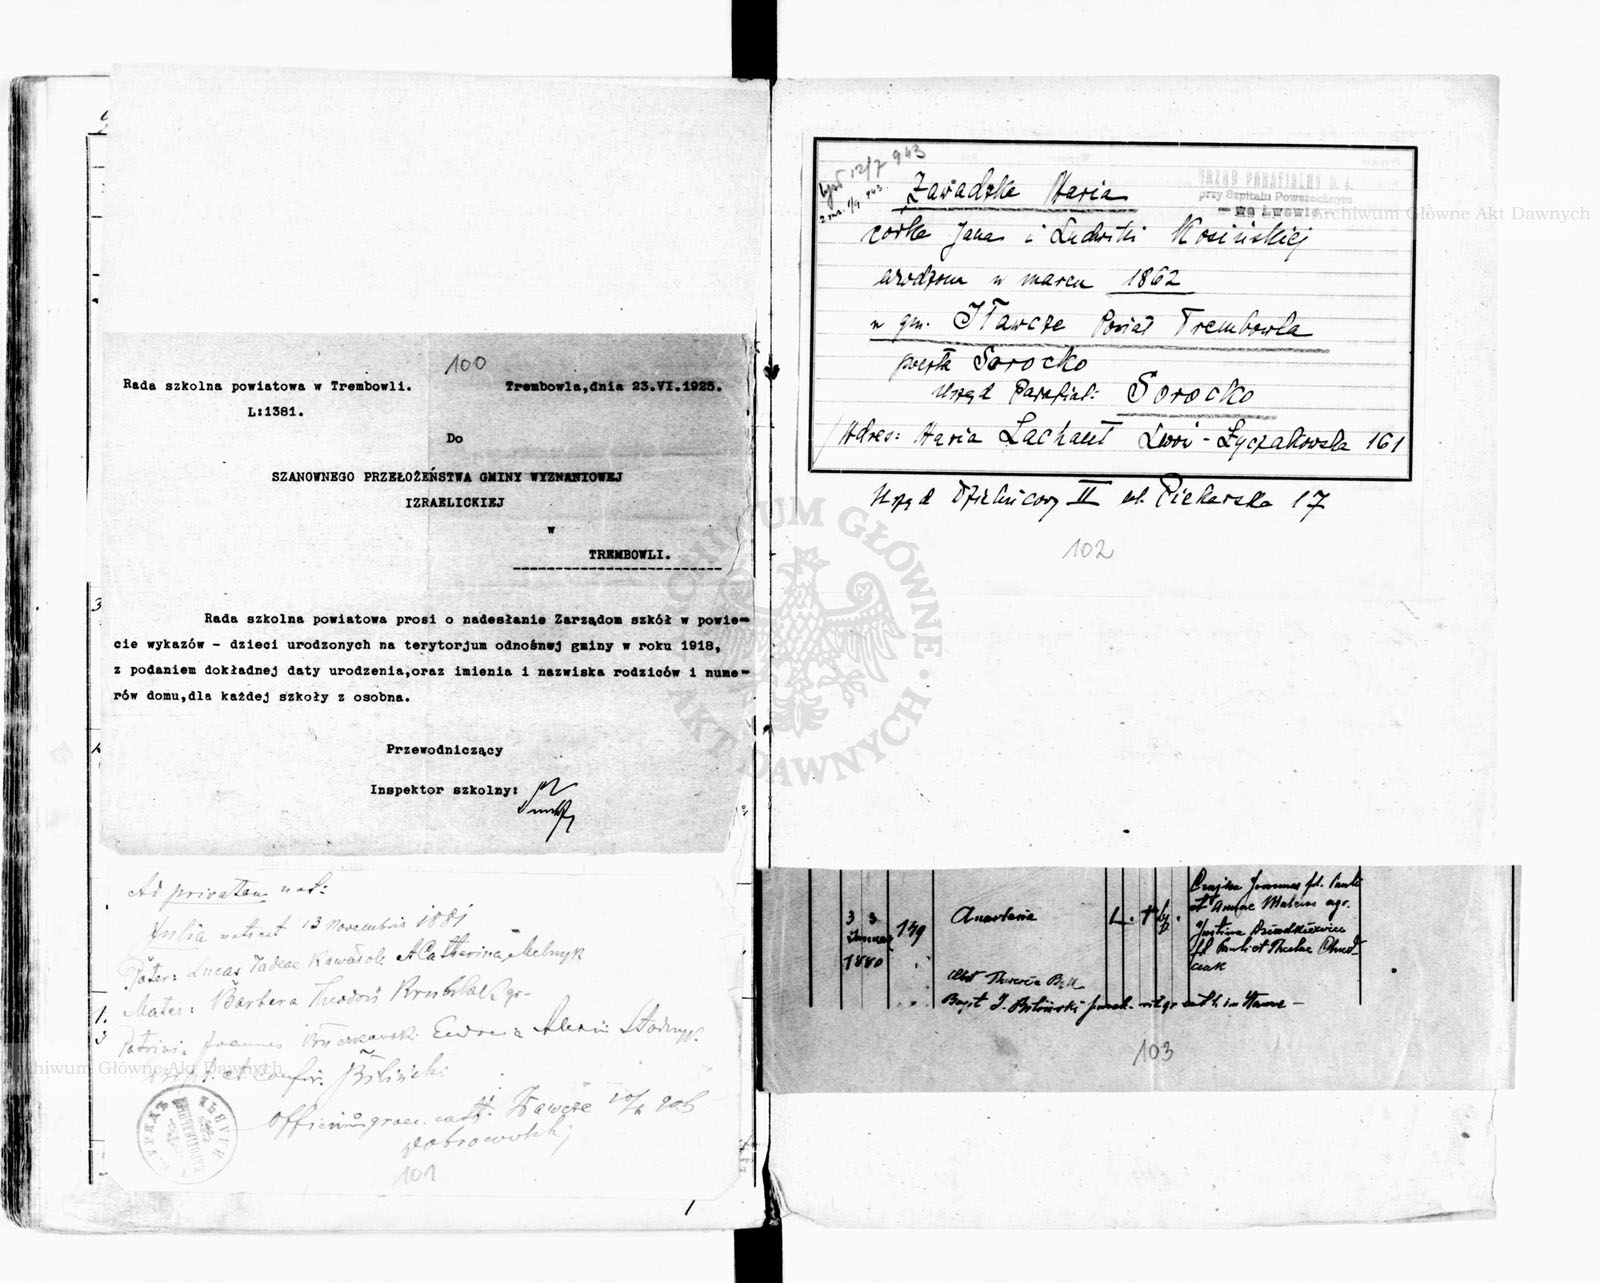 100
Rada szkolna powiatowa w Trembowli.
Trembowla,dnia 23.VI.1925.
L:1381.
Do
SZANOWNEGO PRZEŁOŻEŃSTWA GMINY WYZNANIOWEJ
IZRAELICKIEJ
w
TREMBOWLI.
Rada szkolna powiatowa prosi o nadesłanie Zarządom szkół w powie-
cie wykazów - dzieci urodzonych na terytorjum odnośnej gminy w roku 1918,
z podaniem dokładnej daty urodzenia,oraz imienia i nazwiska rodziców i nume-
rów domu,dla każdej szkoły z osobna.
Przewodniczący
Inspektor szkolny:
Ad privatam not:
Julia natest 13 Novembris 1881
Pater: Lucas Tadeae Kawałok A Catharina Melnyk
Mater: Barbara Theodori
Patrini: Joannes
et confir. Biliński
Officium graec. cath. Iławcze
Dobrowolskij
101
1
12/7 943
Zawadzka Maria
córka Jana i Ludwiki Kosińskiej
urodzona w marcu 1862
w gm. Iławcze Powiat Trembowla
poczta Sorocko
Urząd Parafial: Sorocko
Adres: Maria Lachaut Lwów - Łyczakowska 161
URZĄD PARAFIALNY O. Ł.
przy Szpitalu Powszechnym
we Lwowie
Urząd Dzielnicowy II ul. Piekarska 17
102
3 3
Januar
1880
159
Anastasia
L. +
Czajka Joannes fil. Pauli
et Annae Malecus agr.
Justina Dziadkiewicz
fil Pauli et Theclae Chud-
ciak
Obst. Theresia
Bapt. J. Biliński paroch. rit. gr. cath. in Iławcze
103
Archiwum Główne Akt Dawnych
Archiwum Główne Akt Dawnych
ARCHIWUM GŁÓWNE AKT DAWNYCH